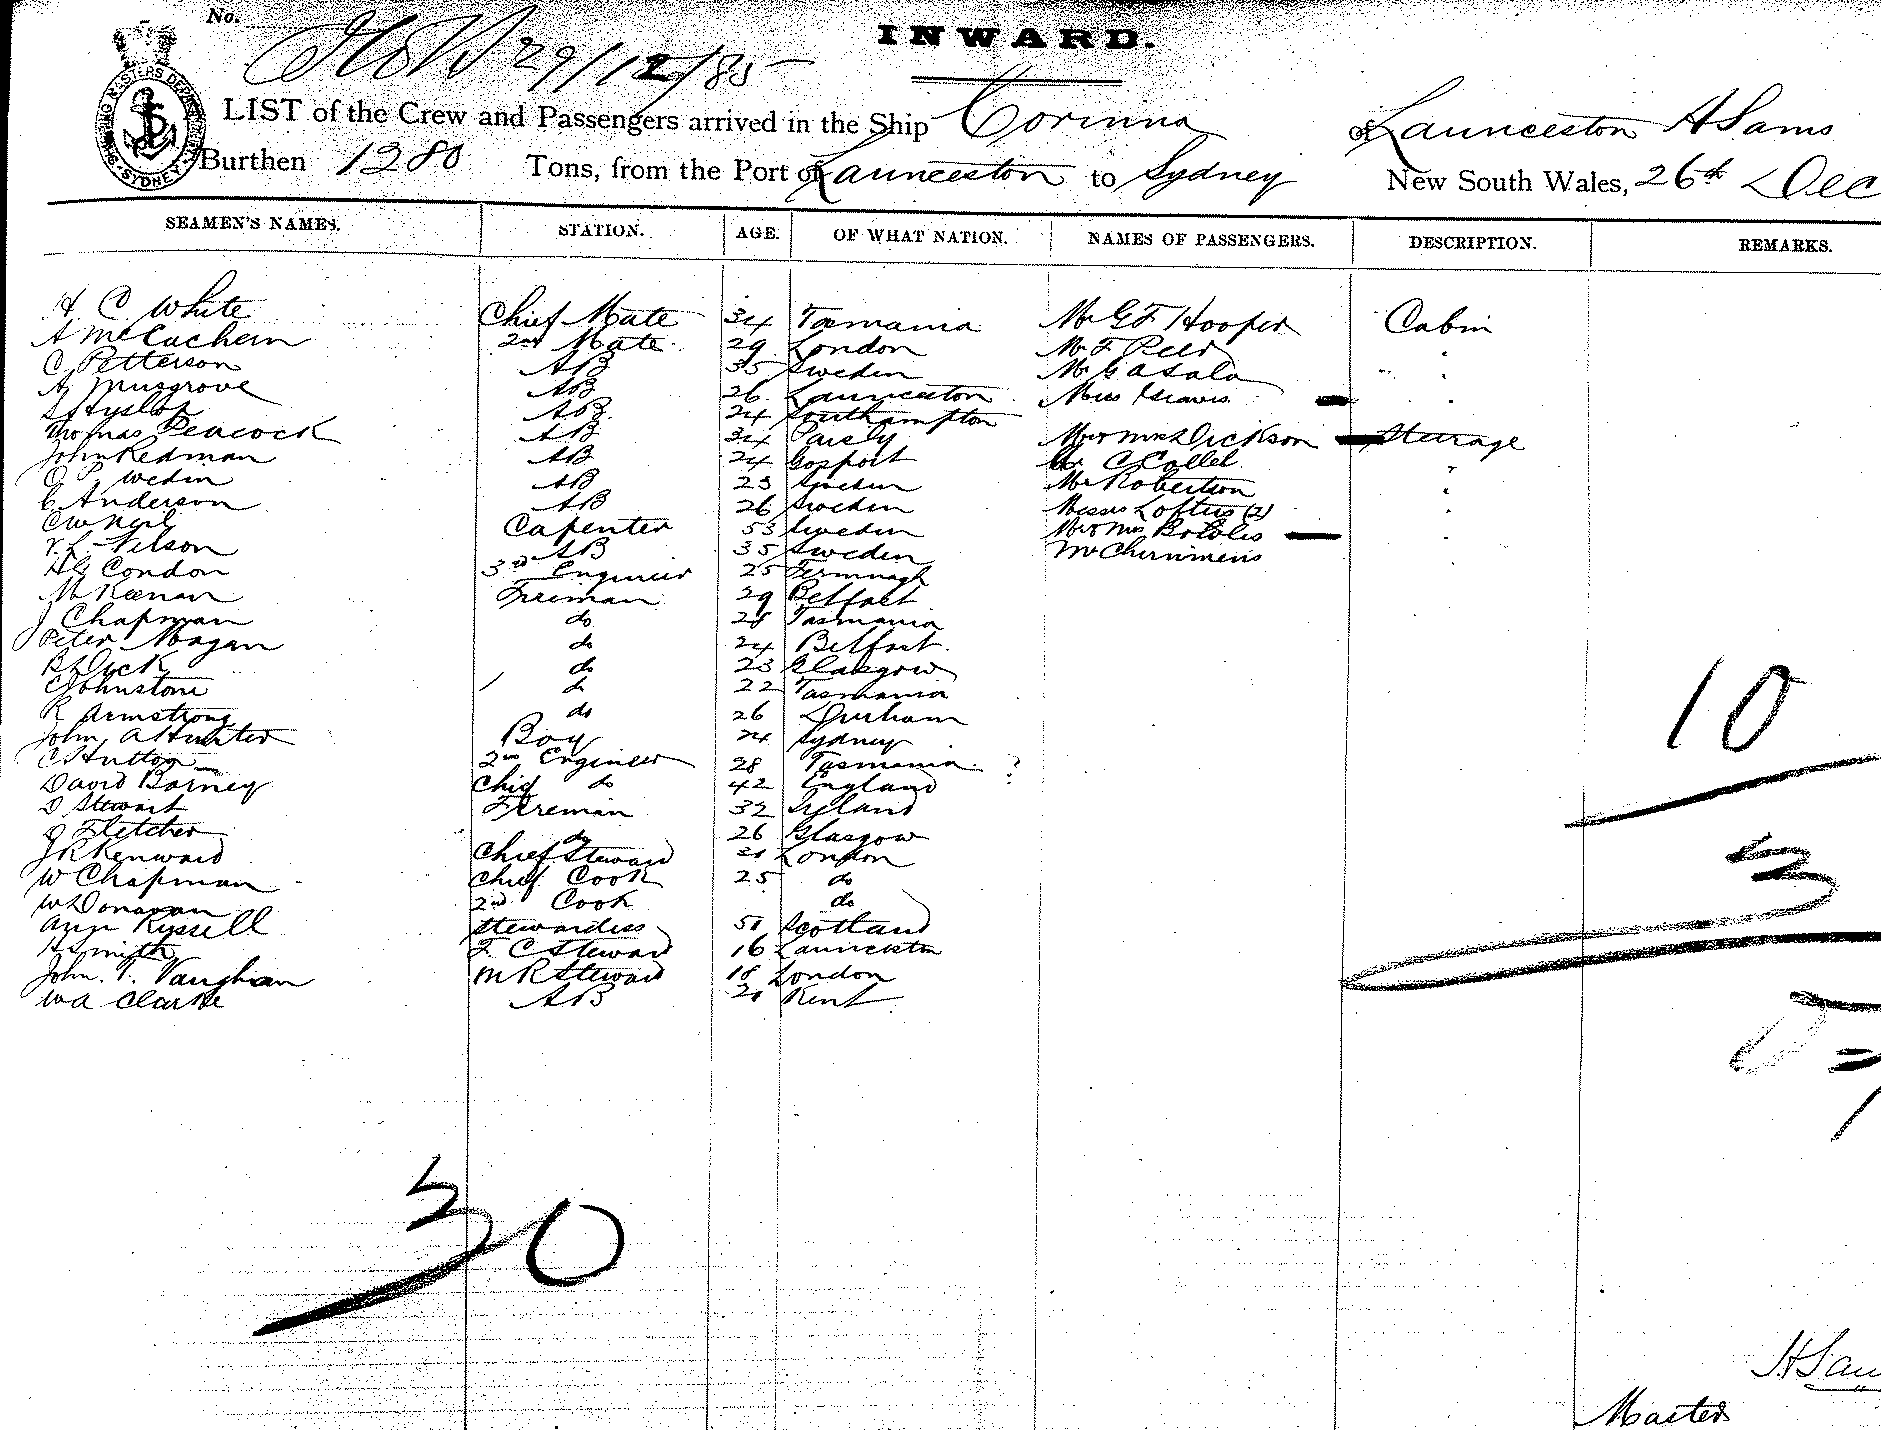 No.
29/12/85
INWARD.
LIST of the Crew and Passengers arrived in the Ship Corinna of Launceston H Sams
Burthen 1280 Tons, from the Port of Launceston to Sydney New South Wales, 26th Dec
SEAMEN'S NAMES. STATION. AGE. OF WHAT NATION. NAMES OF PASSENGERS. DESCRIPTION. REMARKS.
H C White Chief Mate 34 Tasmania Mr G F Hooper Cabin
A McEachern 2nd Mate 29 London Mr F
C Petterson AB 35 Sweden Mr G
A Musgrove AB 26 Launceston Miss
Hyslop AB 24 Southampton
Thomas Peacock AB 34 Paisly Mr & Mrs Dickson Steerage
John Redman AB 24 Gosport Mr C Collel
O P wedin AB 23 Sweden Mr Robertson
C Anderson AB 26 Sweden Messrs Loftus (2)
C W Neil Capenter 53 Sweden Mr & Mrs
Nelson AB 35 Sweden Mr
H G Condon 3rd Engineer 25
M Keenan Fireman 29 Belfast
J Chapman do Tasmania
Peter Magan do 24 Belfast
Dick do 23 Glasgow
C Johnstone do 22 Tasmania
R Armstrong do 26 Durham
John A Hunter Boy Sydney
C Hutton 2nd Engineer 28 Tasmania ?
David Barney Chief do 42 England
D Stewart Fireman 32 Ireland
J Fletcher do 26 Glasgow
J R Kenward Chief Steward London
W Chapman Chief Cook 25 do
W Donavan 2nd Cook do
Ann Russell Stewardess Scotland
H Smith F C Steward 16 Launceston
John. T. Vaughan M R Steward 18 London
W A Clarke AB Kent
10
3
30
H Sam
Master